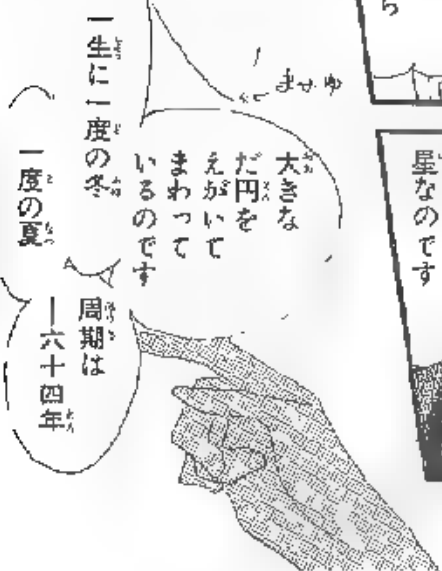 ら
星なのです
大きな
だ円を
えがいて
まわって
いるのです
周期は
―六十四年
一生に一度の冬
一度の夏